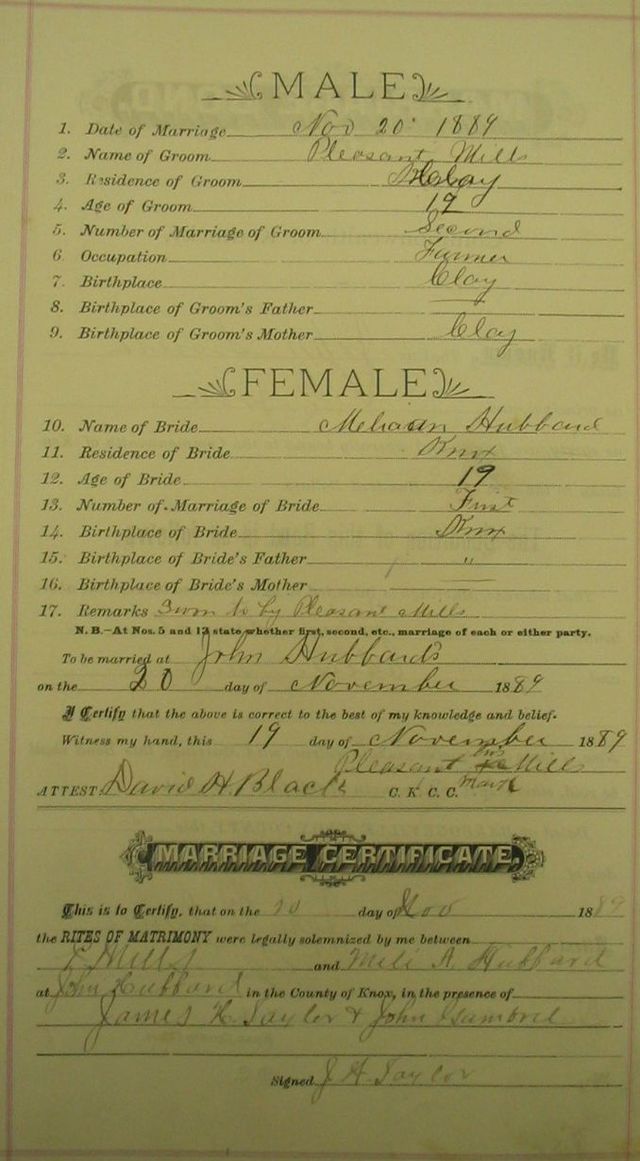 MALE
1. Date of Marriage Nov 20 1889
2. Name of Groom Pleasant Mills
3. Residence of Groom Clay
4. Age of Groom 19
5. Number of Marriage of Groom Second
6. Occupation Farmer
7. Birthplace Clay
8. Birthplace of Groom's Father
9. Birthplace of Groom's Mother Clay
FEMALE
10. Name of Bride Hubbard
11. Residence of Bride Knox
12. Age of Bride 19
13. Number of Marriage of Bride First
14. Birthplace of Bride Knox
15. Birthplace of Bride's Father "
16. Birthplace of Bride's Mother
17. Remarks Sworn to by Pleasant Mills
N. B.—At Nos. 5 and 13 state whether first, second, etc., marriage of each or either party.
To be married at John Hubbard's
on the 20 day of November 1889
I Certify that the above is correct to the best of my knowledge and belief.
Witness my hand, this 19 day of November 1889
Pleasant his x Mills
ATTEST: David H. Black C. K. C. C. mark
MARRIAGE CERTIFICATE.
This is to Certify, that on the 20 day of Nov 1889
the RITES OF MATRIMONY were legally solemnized by me between
Mills and Mili A. Hubbard
at John Hubbard in the County of Knox, in the presence of
James H. Taylor & John Gambrel
Signed J. A. Taylor